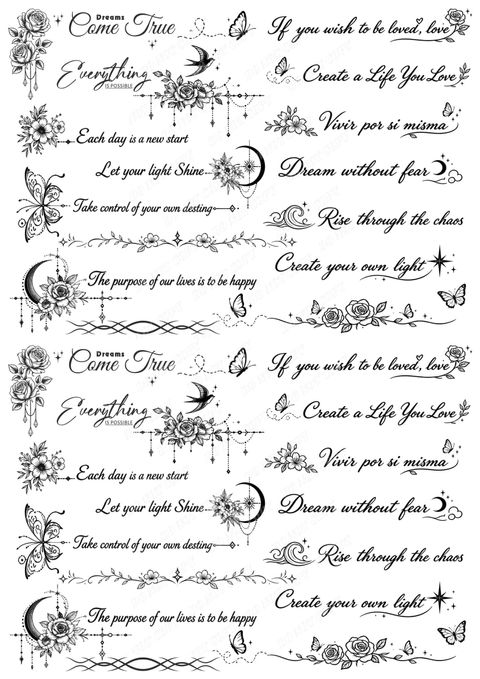 Dreams
Come True
Everything
IS POSSIBLE
Each day is a new start
Let your light Shine
Take control of your own desting
The purpose of our lives is to be happy
If you wish to be loved, love
Create a Life You Love
Vivir por si misma
Dream without fear
Rise through the chaos
Create your own light
Dreams
Come True
Everything
IS POSSIBLE
Each day is a new start
Let your light Shine
Take control of your own desting
The purpose of our lives is to be happy
If you wish to be loved, love
Create a Life You Love
Vivir por si misma
Dream without fear
Rise through the chaos
Create your own light